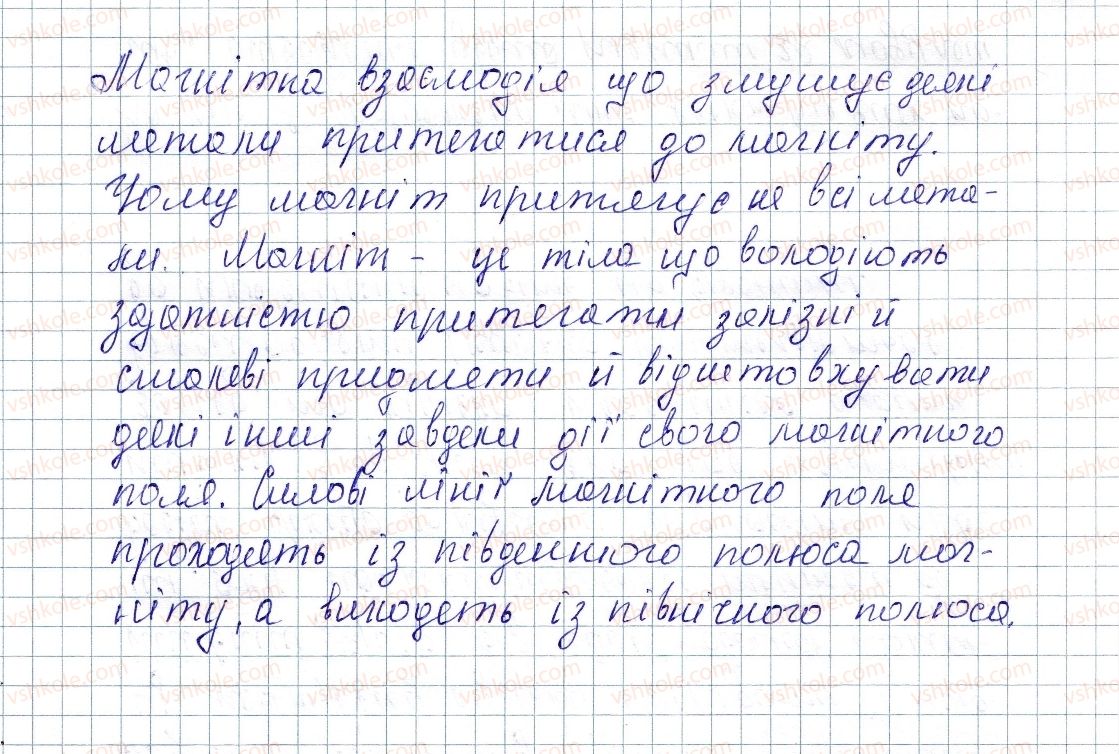 Магнітна взаємодія що змушує деякі
метали притягатися до магніту.
Чому магніт притягує не всі мета-
ли. Магніт - це тіла що володіють
здатністю притягати залізні й
сталеві придмети й відштовхувати
деякі інші завдяки дії свого магнітного
поля. Силові лінії магнітного поля
проходять із південного полюса маг-
ніту, а виходять із північного полюса.